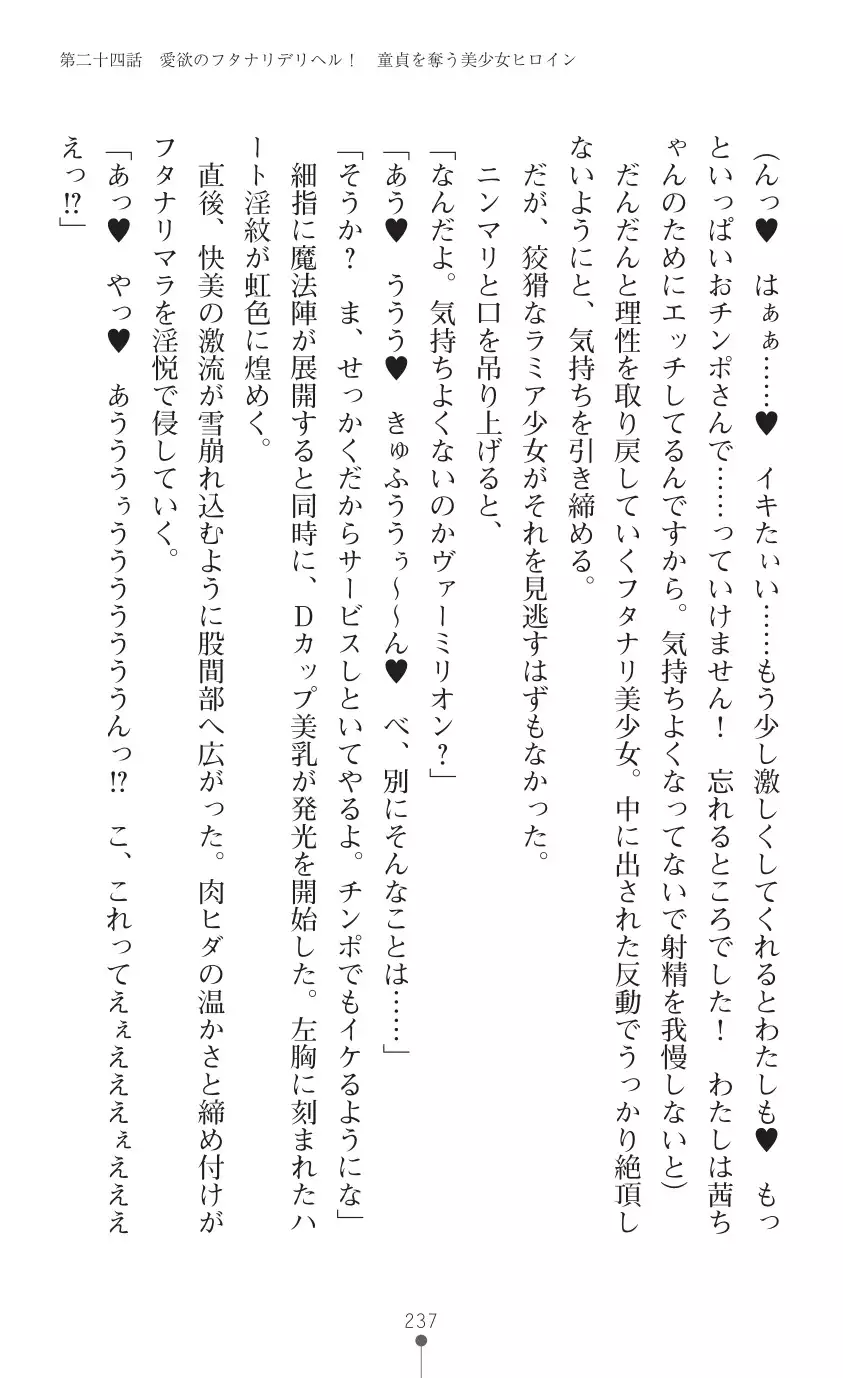 第二十四話　愛欲のフタナリデリヘル！　童貞を奪う美少女ヒロイン
（んっ♥　はぁぁ……♥　イキたぃい……もう少し激しくしてくれるとわたしも♥　もっ
といっぱいおチンポさんで……っていけません！　忘れるところでした！　わたしは茜ち
ゃんのためにエッチしてるんですから。気持ちよくなってないで射精を我慢しないと）
　だんだんと理性を取り戻していくフタナリ美少女。中に出された反動でうっかり絶頂し
ないようにと、気持ちを引き締める。
　だが、狡猾なラミア少女がそれを見逃すはずもなかった。
　ニンマリと口を吊り上げると、
「なんだよ。気持ちよくないのかヴァーミリオン？」
「あう♥　ううう♥　きゅふううぅ～～ん♥　べ、別にそんなことは……」
「そうか？　ま、せっかくだからサービスしといてやるよ。チンポでもイケるようにな」
　細指に魔法陣が展開すると同時に、Ｄカップ美乳が発光を開始した。左胸に刻まれたハ
ート淫紋が虹色に煌めく。
　直後、快美の激流が雪崩れ込むように股間部へ広がった。肉ヒダの温かさと締め付けが
フタナリマラを淫悦で侵していく。
「あっ♥　やっ♥　あうううぅううううううんっ!?　こ、これってえぇえええぇえええ
えっ!?」
237